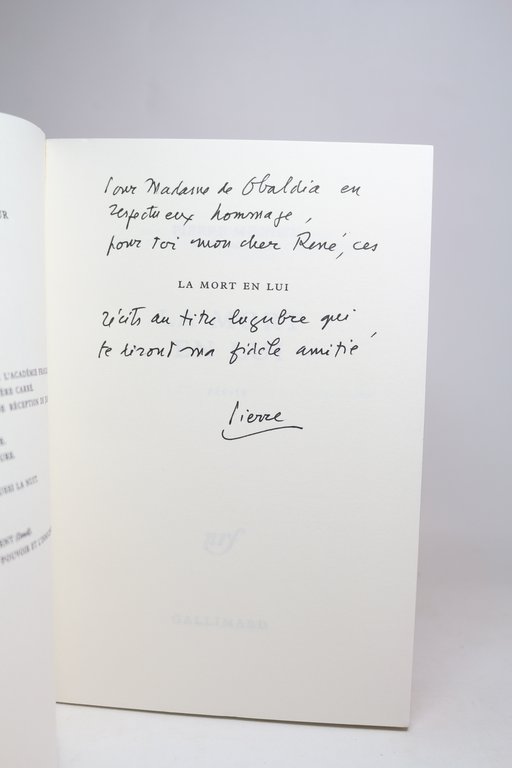 UR
L'ACADÉMIE
ÈRE CARRÉ.
RÉCEPTION DE
URE.
LA NUIT
POUVOIR ET
Pour Madame de Obaldia en
respectueux hommage,
pour toi mon cher René, ces
LA MORT EN LUI
récits au titre lugubre qui
te diront ma fidèle amitié,
Pierre
nrf
GALLIMARD